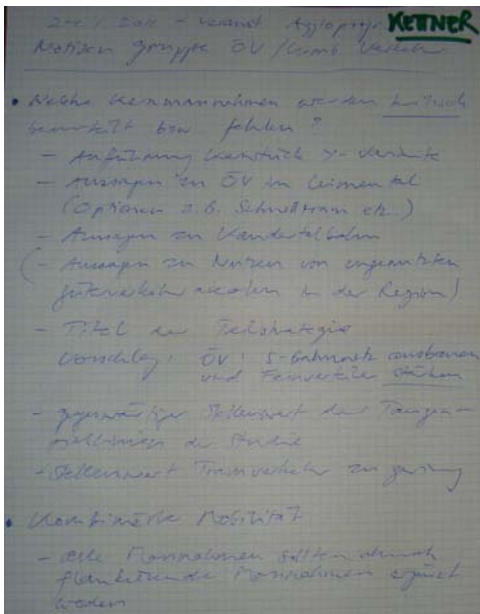 KETTNER
Notizen Gruppe ÖV / Komb Verkehr
• Welche Kernmassnahmen werden kritisch
beurteilt bzw fehlen?
- Anführung Kernstück Y-Variante
- Aussagen zu ÖV im Leimental
(Optionen z.B. Schnelltram etc.)
- Aussagen zu Kandertalbahn
(- Aussagen zu Nutzen von ungenutzten
in der Region)
- Titel der Teilstrategie
Vorschlag: ÖV: S-Bahnnetz ausbauen
und Feinverteiler stärken
- gegenwärtiger Stellenwert der
der Studie
- Stellenwert Tramverkehr zu gering
• Kombinierte Mobilität
- alle Massnahmen sollten durch
flankierende Massnahmen ergänzt
werden